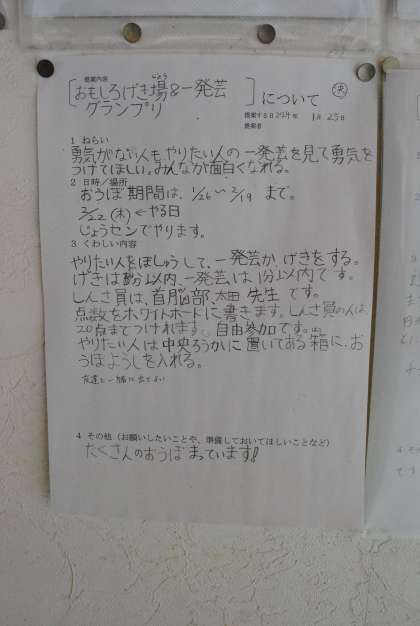 提案内容
じょう
[おもしろげき場&一発芸
グランプリ]について
提案する日 24年 1月 25日
提案者
1 ねらい
勇気がない人もやりたい人の一発芸を見て勇気を
つけてほしい。みんなが面白くなれる。
2 日時/場所
おうぼ期間は、1/26〜2/19 まで。
2/22(木)←やる日
じょうセンでやります。
3 くわしい内容
やりたい人をぼしゅうして、一発芸かげきをする。
げきは 分以内、一発芸は1分以内です。
しんさ員は、首脳部、太田先生です。
点数をホワイトボードに書きます。しんさ員の人は、
20点までつけれます。自由参加です。
やりたい人は中央ろうかに置いてある箱に、お
うぼようしを入れる。
友達と一緒に出てよい
4 その他(お願いしたいことや、準備しておいてほしいことなど)
たくさんのおうぼまっています!